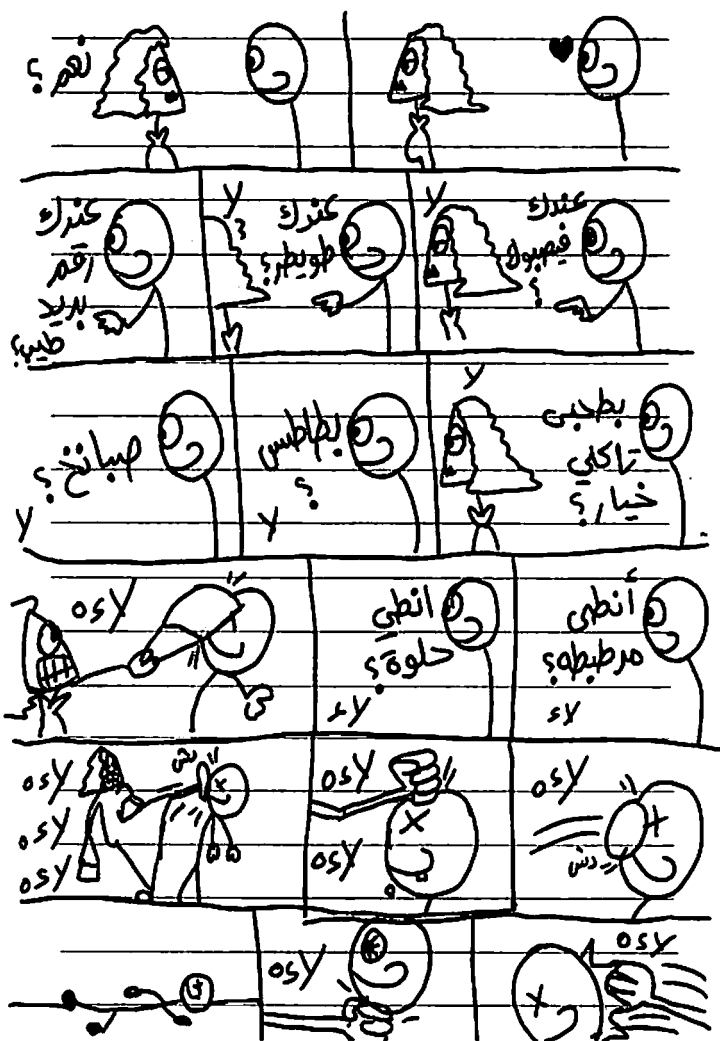 نعم؟
عندك
فيصبوك
؟
لا
عندك
طويطر؟
لا
عندك
رقم
بريد
طيب؟
بطحبي
تاكلي
خيار؟
لا
بطاطس
؟
لا
صبانخ؟
لا
أنطي
مرطبطه؟
لاء
انطي
حلوة؟
لاء
لاءه
لاءه
دش
لاءه
لاءه
لاءه
دش
لاءه
لاءه
لاءه
لاءه